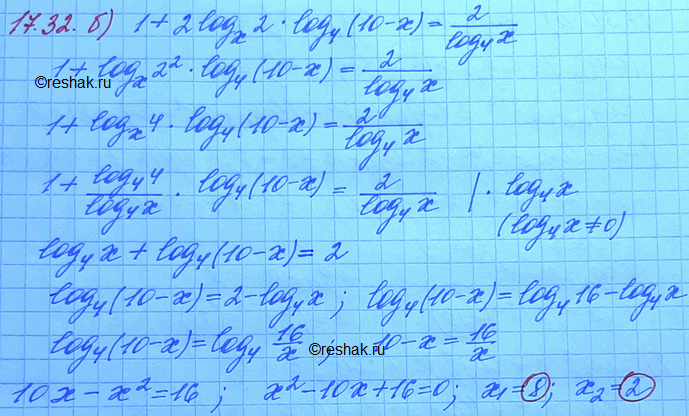 17.32. б) 1 + 2 logₓ 2 · log₄ (10-x) = 2/log₄ x
1 + logₓ 2² · log₄ (10-x) = 2/log₄ x
©reshak.ru
1 + logₓ 4 · log₄ (10-x) = 2/log₄ x
©reshak.ru
1 + log₄ 4/log₄ x · log₄ (10-x) = 2/log₄ x | · log₄ x
(log₄ x ≠ 0)
log₄ x + log₄ (10-x) = 2
log₄ (10-x) = 2 - log₄ x ; log₄ (10-x) = log₄ 16 - log₄ x
log₄ (10-x) = log₄ 16/x ; 10-x = 16/x
©reshak.ru
10x - x² = 16 ; x² - 10x + 16 = 0 ; x₁ = 8 ; x₂ = 2